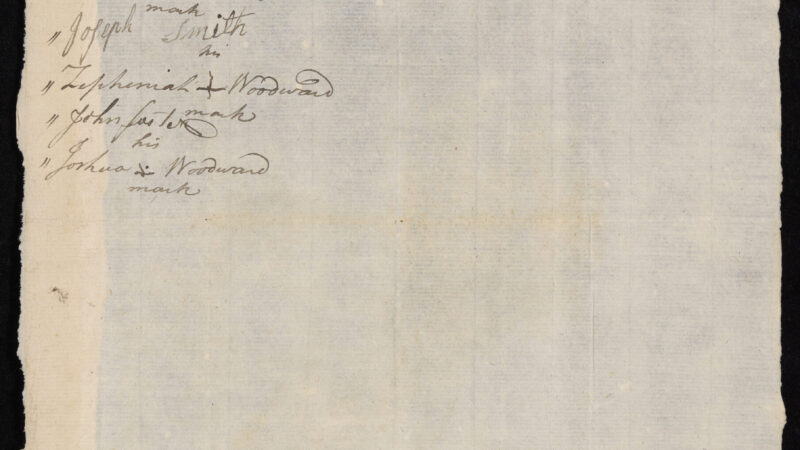 mark
" Joseph Smith
his
" Zepheniah + Woodward
mark
" John Foster
his
" Joshua + Woodward
mark